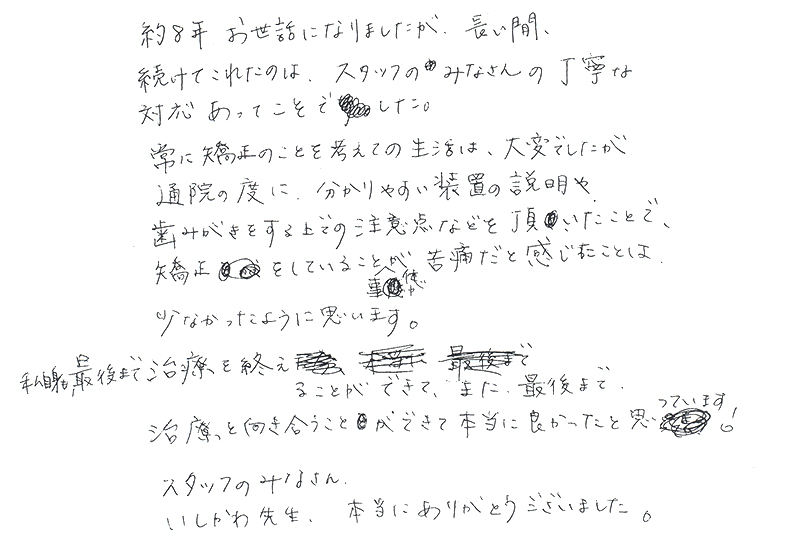 約8年 お世話になりましたが、長い間、
続けてこれたのは、スタッフのみなさんの丁寧な
対応あってことでした。
常に矯正のことを考えての生活は、大変でしたが
通院の度に、分かりやすい装置の説明や、
歯みがきをする上での注意点などを頂いたことで、
矯正をしていること事体が苦痛だと感じたことは、
少なかったように思います。
私自身最後まで治療を終え
ることができて、また、最後まで、
治療っと向き合うことができて本当に良かったと思っています!
スタッフのみなさん、
いしかわ先生、本当にありがとうございました。